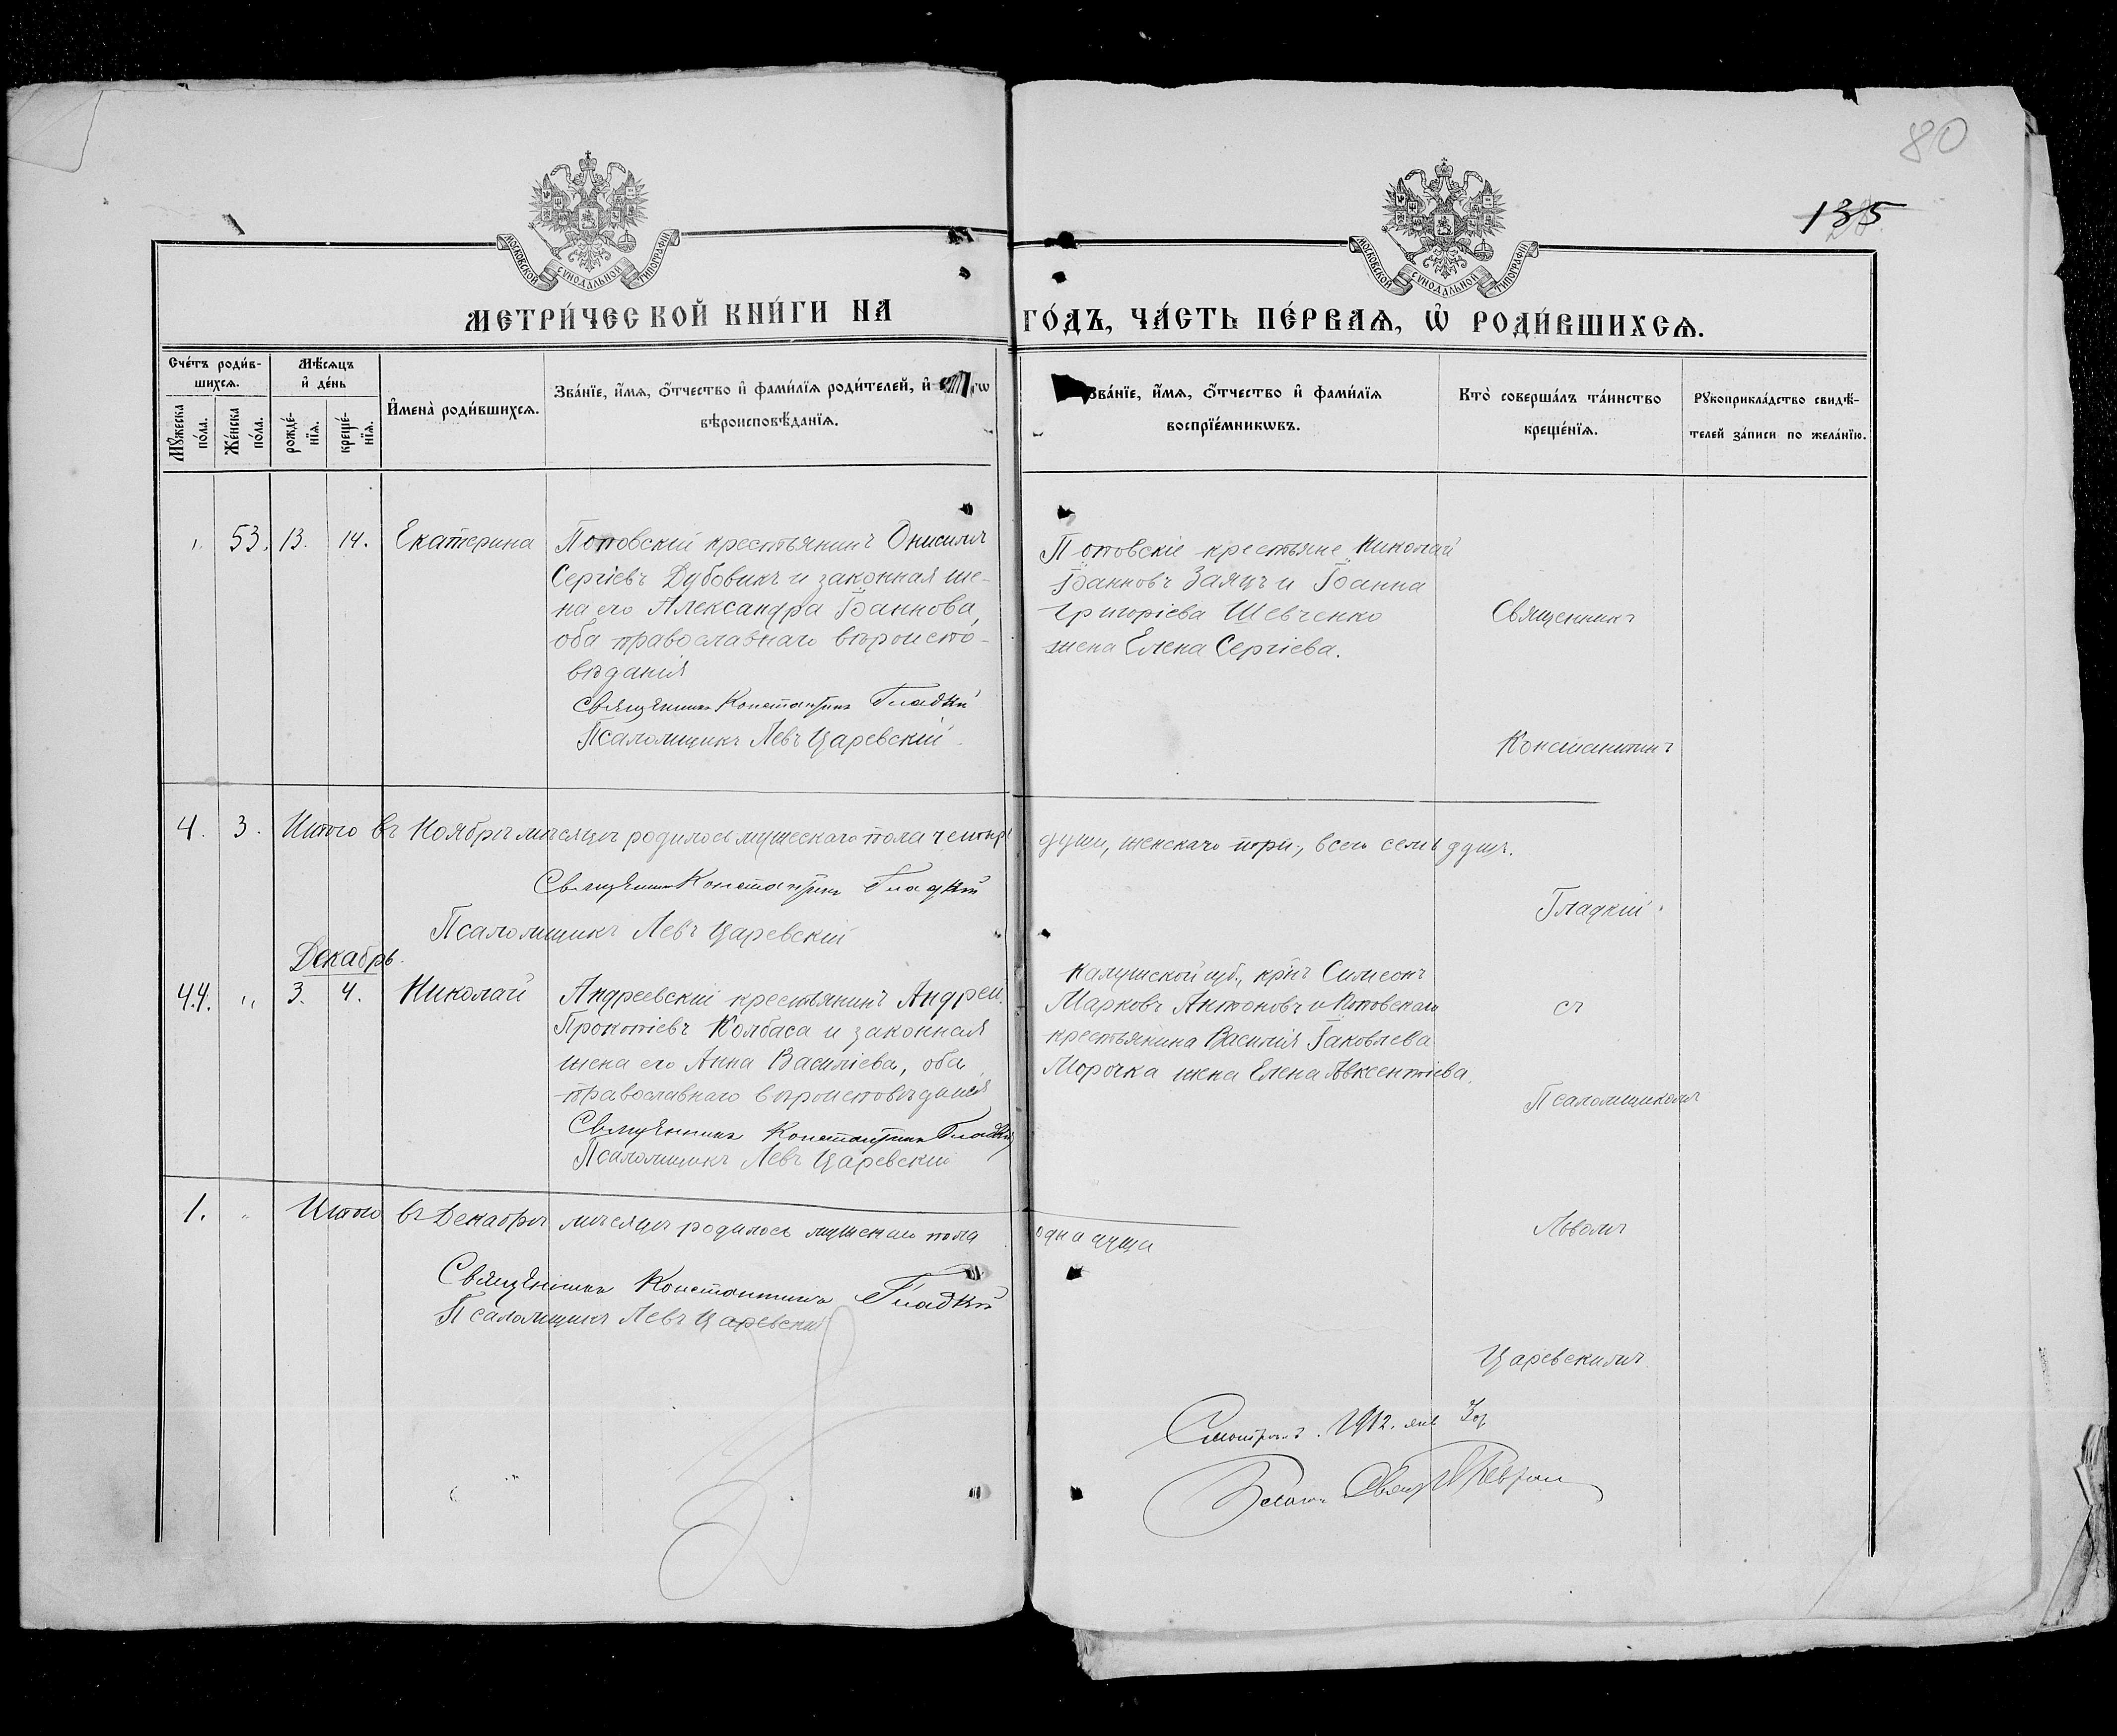 80
135
МОСКОВСКОЙ СѴНОДАЛЬНОЙ ТИПОГРАФІИ
МОСКОВСКОЙ СѴНОДАЛЬНОЙ ТИПОГРАФІИ
МЕТРИ́ЧЕСКОЙ КНИ́ГИ НА
ГО́ДЪ, ЧА́СТЬ ПЕ́РВАѦ, Ѽ РОДИ́ВШИХСѦ.
Сче́тъ роди́в-
шихсѧ.
Мꙋ́жеска
по́ла.
Же́нска
по́ла.
Мѣ́сѧцъ
и҆ де́нь
рожде́-
нїѧ.
креще́-
нїѧ.
И҆мена̀ роди́вшихсѧ.
Зва́нїе, и҆́мѧ, ѻ҆́тчество и҆ фами́лїѧ роди́телей, и҆
вѣроисповѣ́данїѧ.
Зва́нїе, и҆́мѧ, ѻ҆́тчество и҆ фами́лїѧ
воспрїе́мникѡвъ.
Кто̀ соверша́лъ та́инство
креще́нїѧ.
Рꙋкоприкла́дство свидѣ́-
телей за́писи по жела́нїю.
53. 13. 14. Екатерина
Поповскій крестьянинъ Онисимъ
Сергіевъ Дубовикъ и законная же-
на его Александра Іоаннова,
оба православнаго вѣроиспо-
вѣданія
Священникъ Константинъ Гладкій
Псаломщикъ Левъ Царевскій
Поповскіе крестьяне Николай
Іоанновъ Заяцъ и Іоанна
Григоріева Шевченко
жена Елена Сергіева.
Священникъ
Константинъ
4. 3. Итого въ Ноябрѣ мѣсяцѣ родилось мужескаго пола четыре
души, женскаго три, всего семь душъ.
Священникъ Константинъ Гладкій
Псаломщикъ Левъ Царевскій
Гладкій
Декабрь.
44. " 3. 4. Николай
Андреевскій крестьянинъ Андрей
Прокопіевъ Колбаса и законная
жена его Анна Василіева, оба
православнаго вѣроисповѣданія
Священникъ Константинъ Гладкій
Псаломщикъ Левъ Царевскій
Калужской губ., кр-нъ Симеонъ
Марковъ Антоновъ и Поповскаго
крестьянина Василія Іаковлева
Морочка жена Елена Авксентіева.
съ
Псаломщикомъ
1. " Итого въ Декабрѣ мѣсяцѣ родилось мужскаго пола
одна душа
Священникъ Константинъ Гладкій
Псаломщикъ Левъ Царевскій
Львомъ
Царевскимъ
Смотрѣлъ. 1912. янв